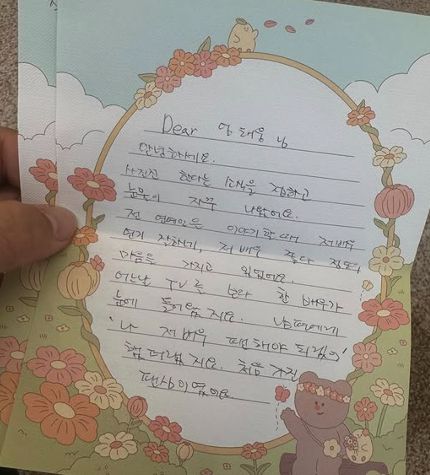 Dear 엄태웅 님
안녕하세요.
사진전 한다는 소식을 접하고
눈물이 자꾸 나왔어요.
전 연예인은 이야기할때 저배우
연기 잘하지, 저 배우 좋다 정도,
마음을 가지고 있었어요.
어느날 TV를 보다 한 배우가
눈에 들어왔지요. 남편에게
'나 저 배우 팬 해야 되겠어'
했더랬지요. 처음 가진
팬심이였어요